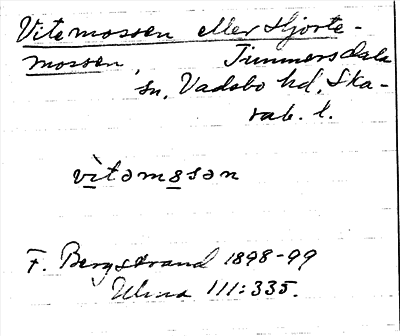 Vitemossen eller Hjorte-
mossen, Timmersdala
sn, Vadsbo hd, Ska-
rab. l.
vìtəmɷsən
F. Bergstrand 1898-99
Ulma 111:335.